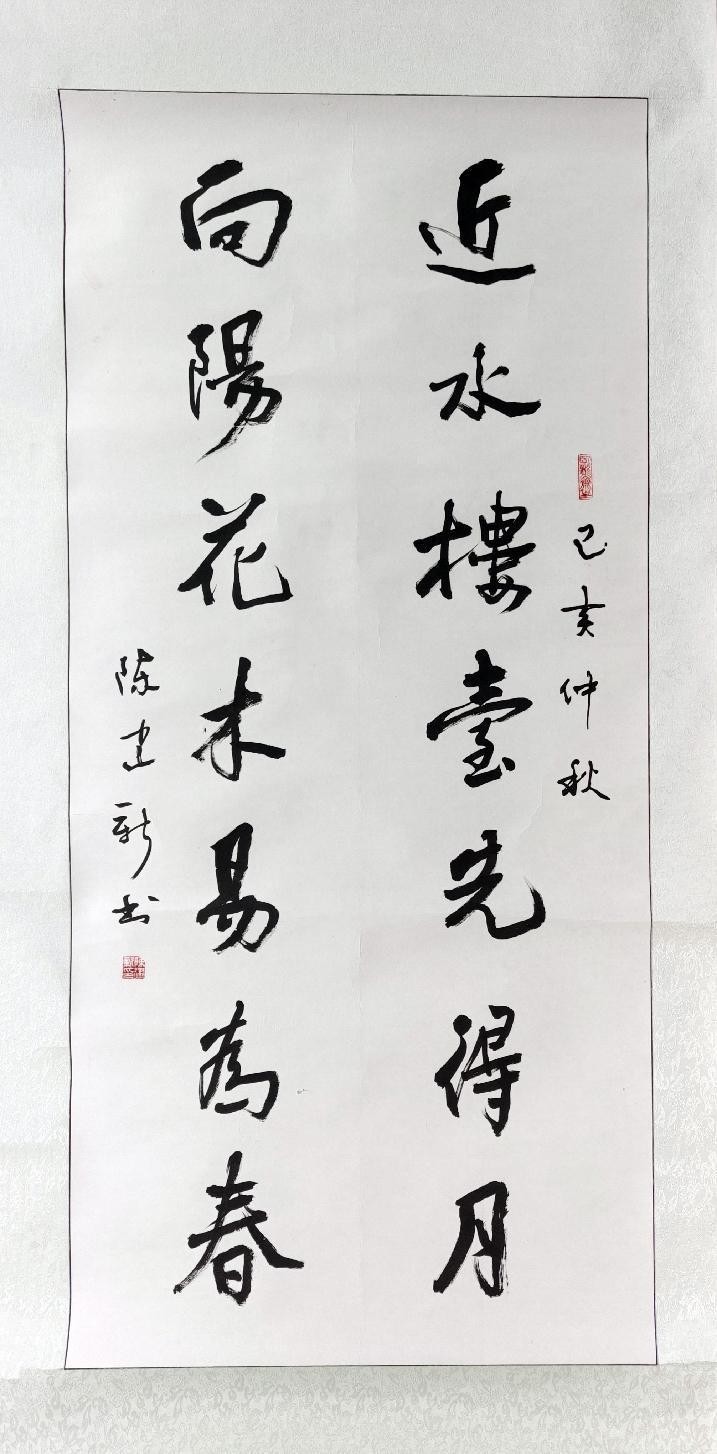 己亥仲秋
近水樓臺先得月
向陽花木易為春
陈建新书